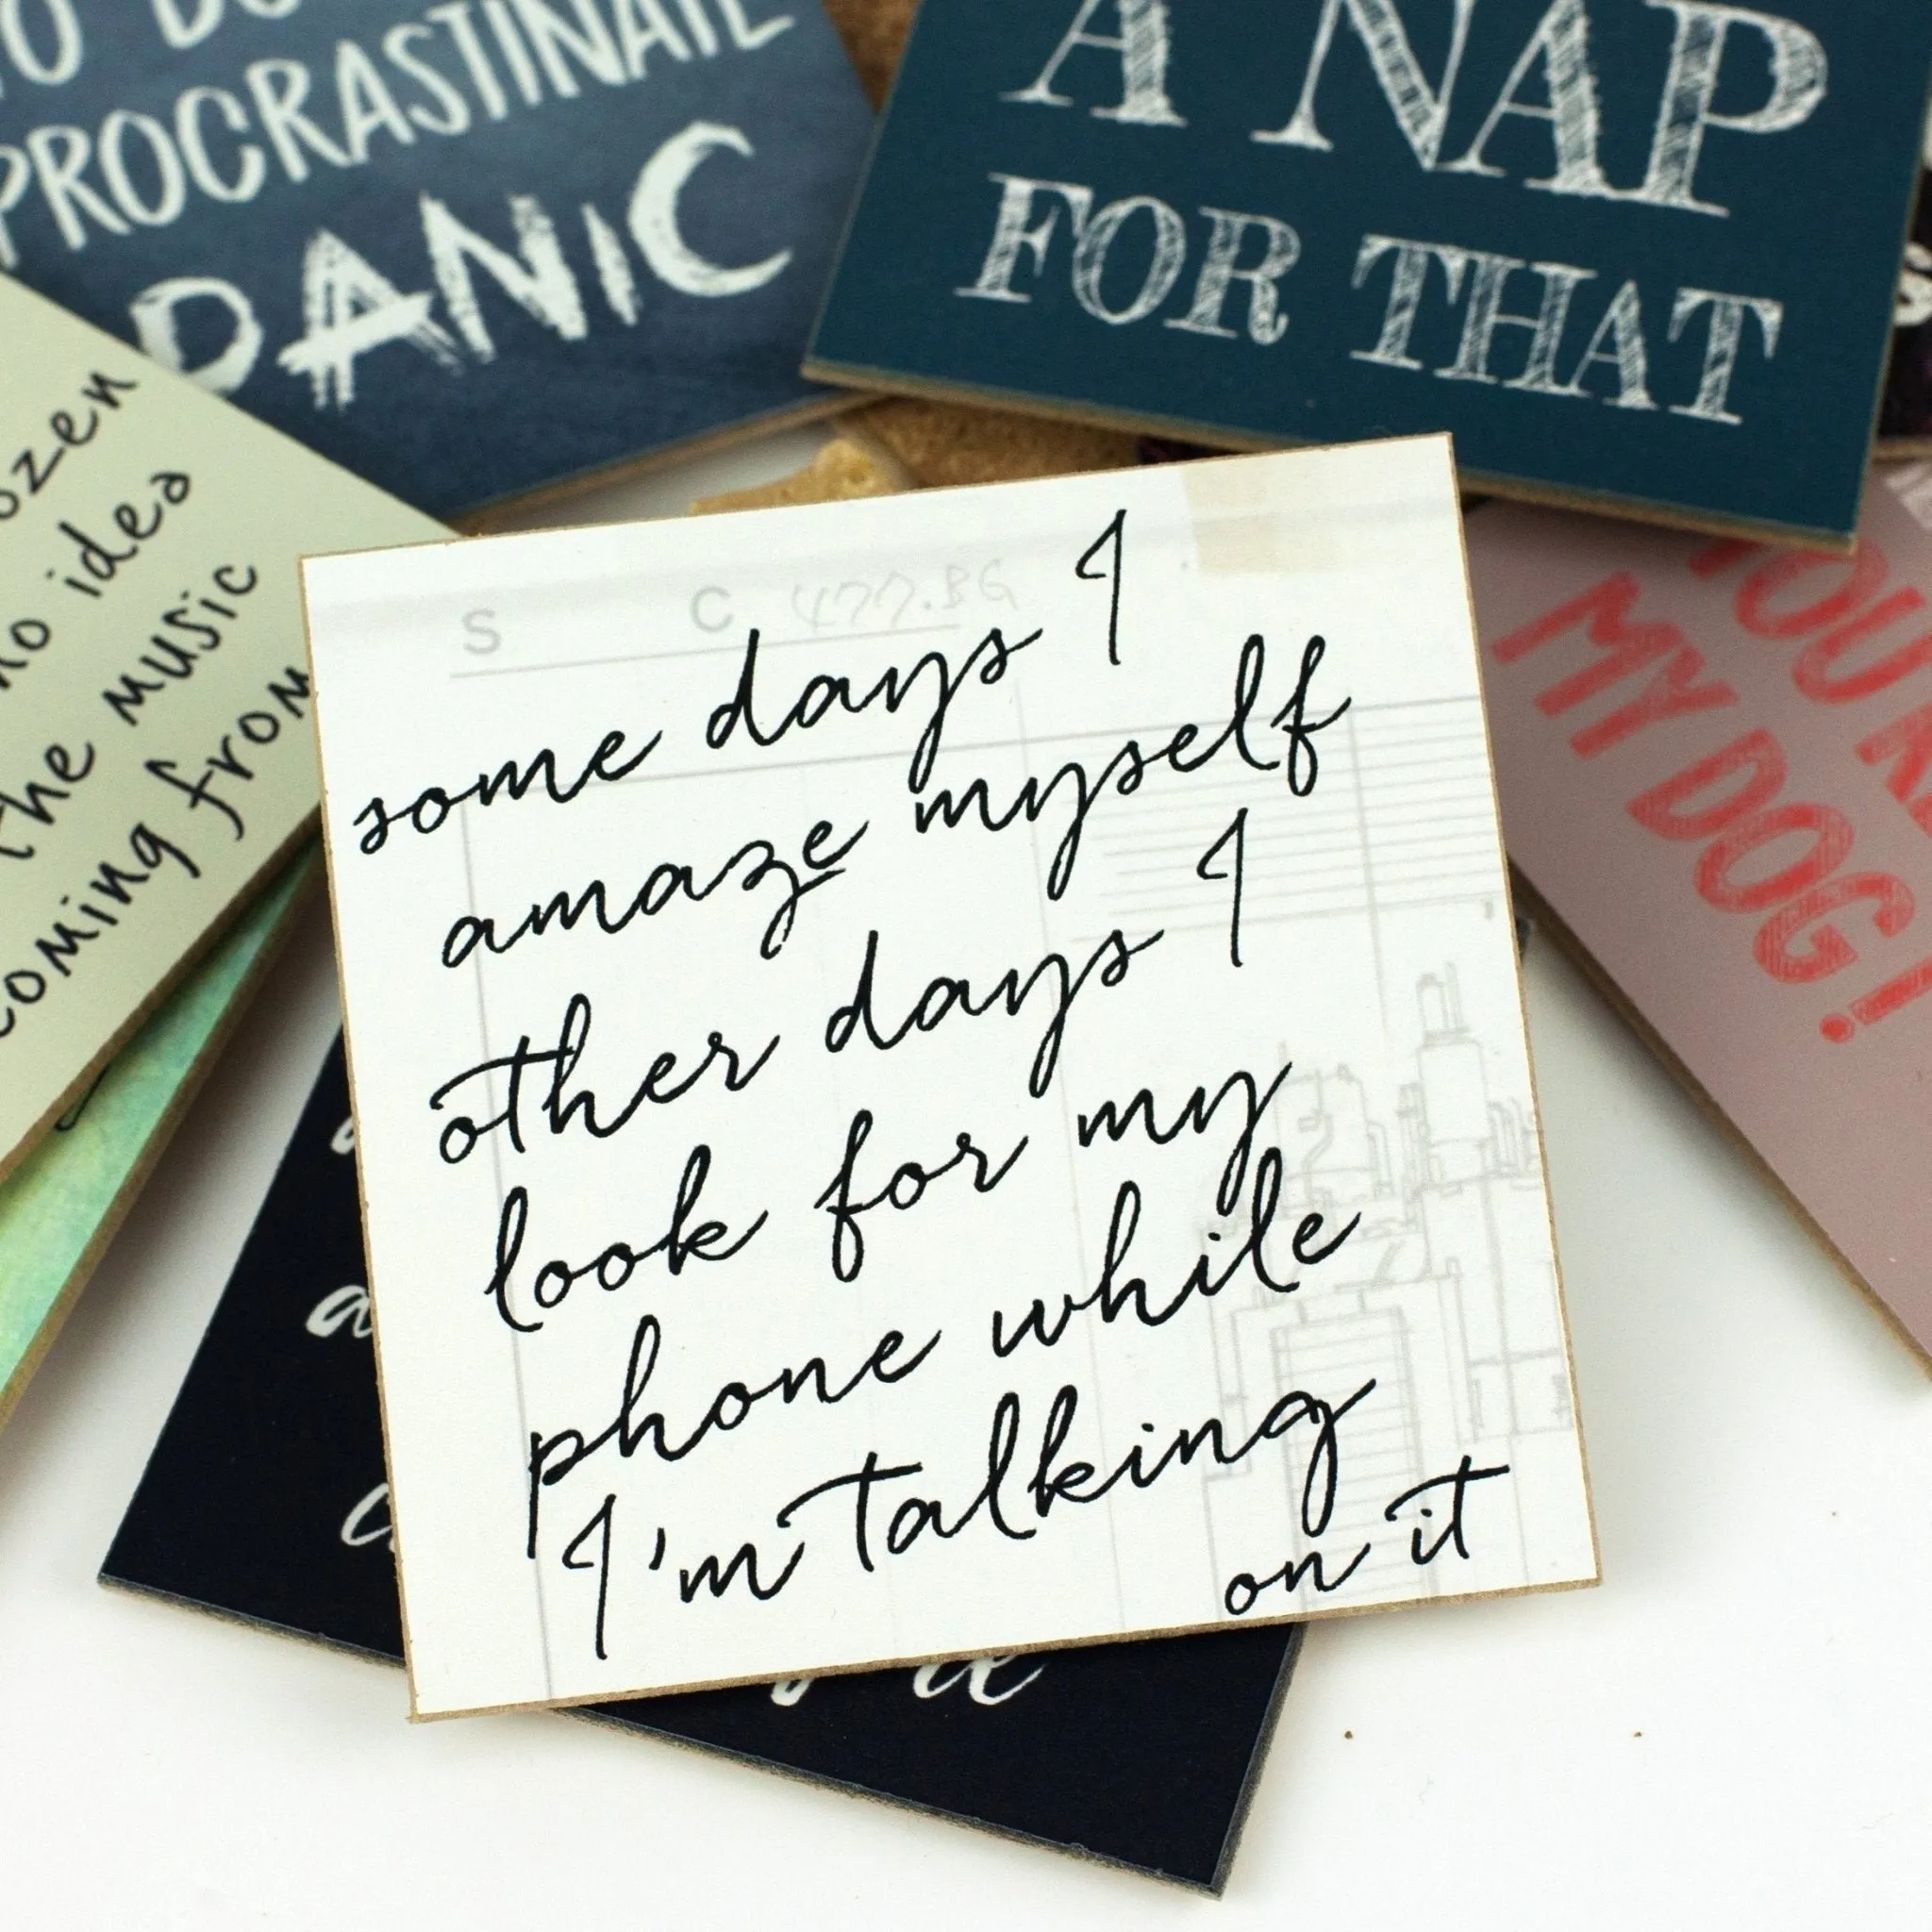 PROCRASTINATE
PANIC
A NAP
FOR THAT
idea
the music
coming from
MY DOG!
S C 477.BG
some days I
amaze myself
other days I
look for my
phone while
I'm talking
on it